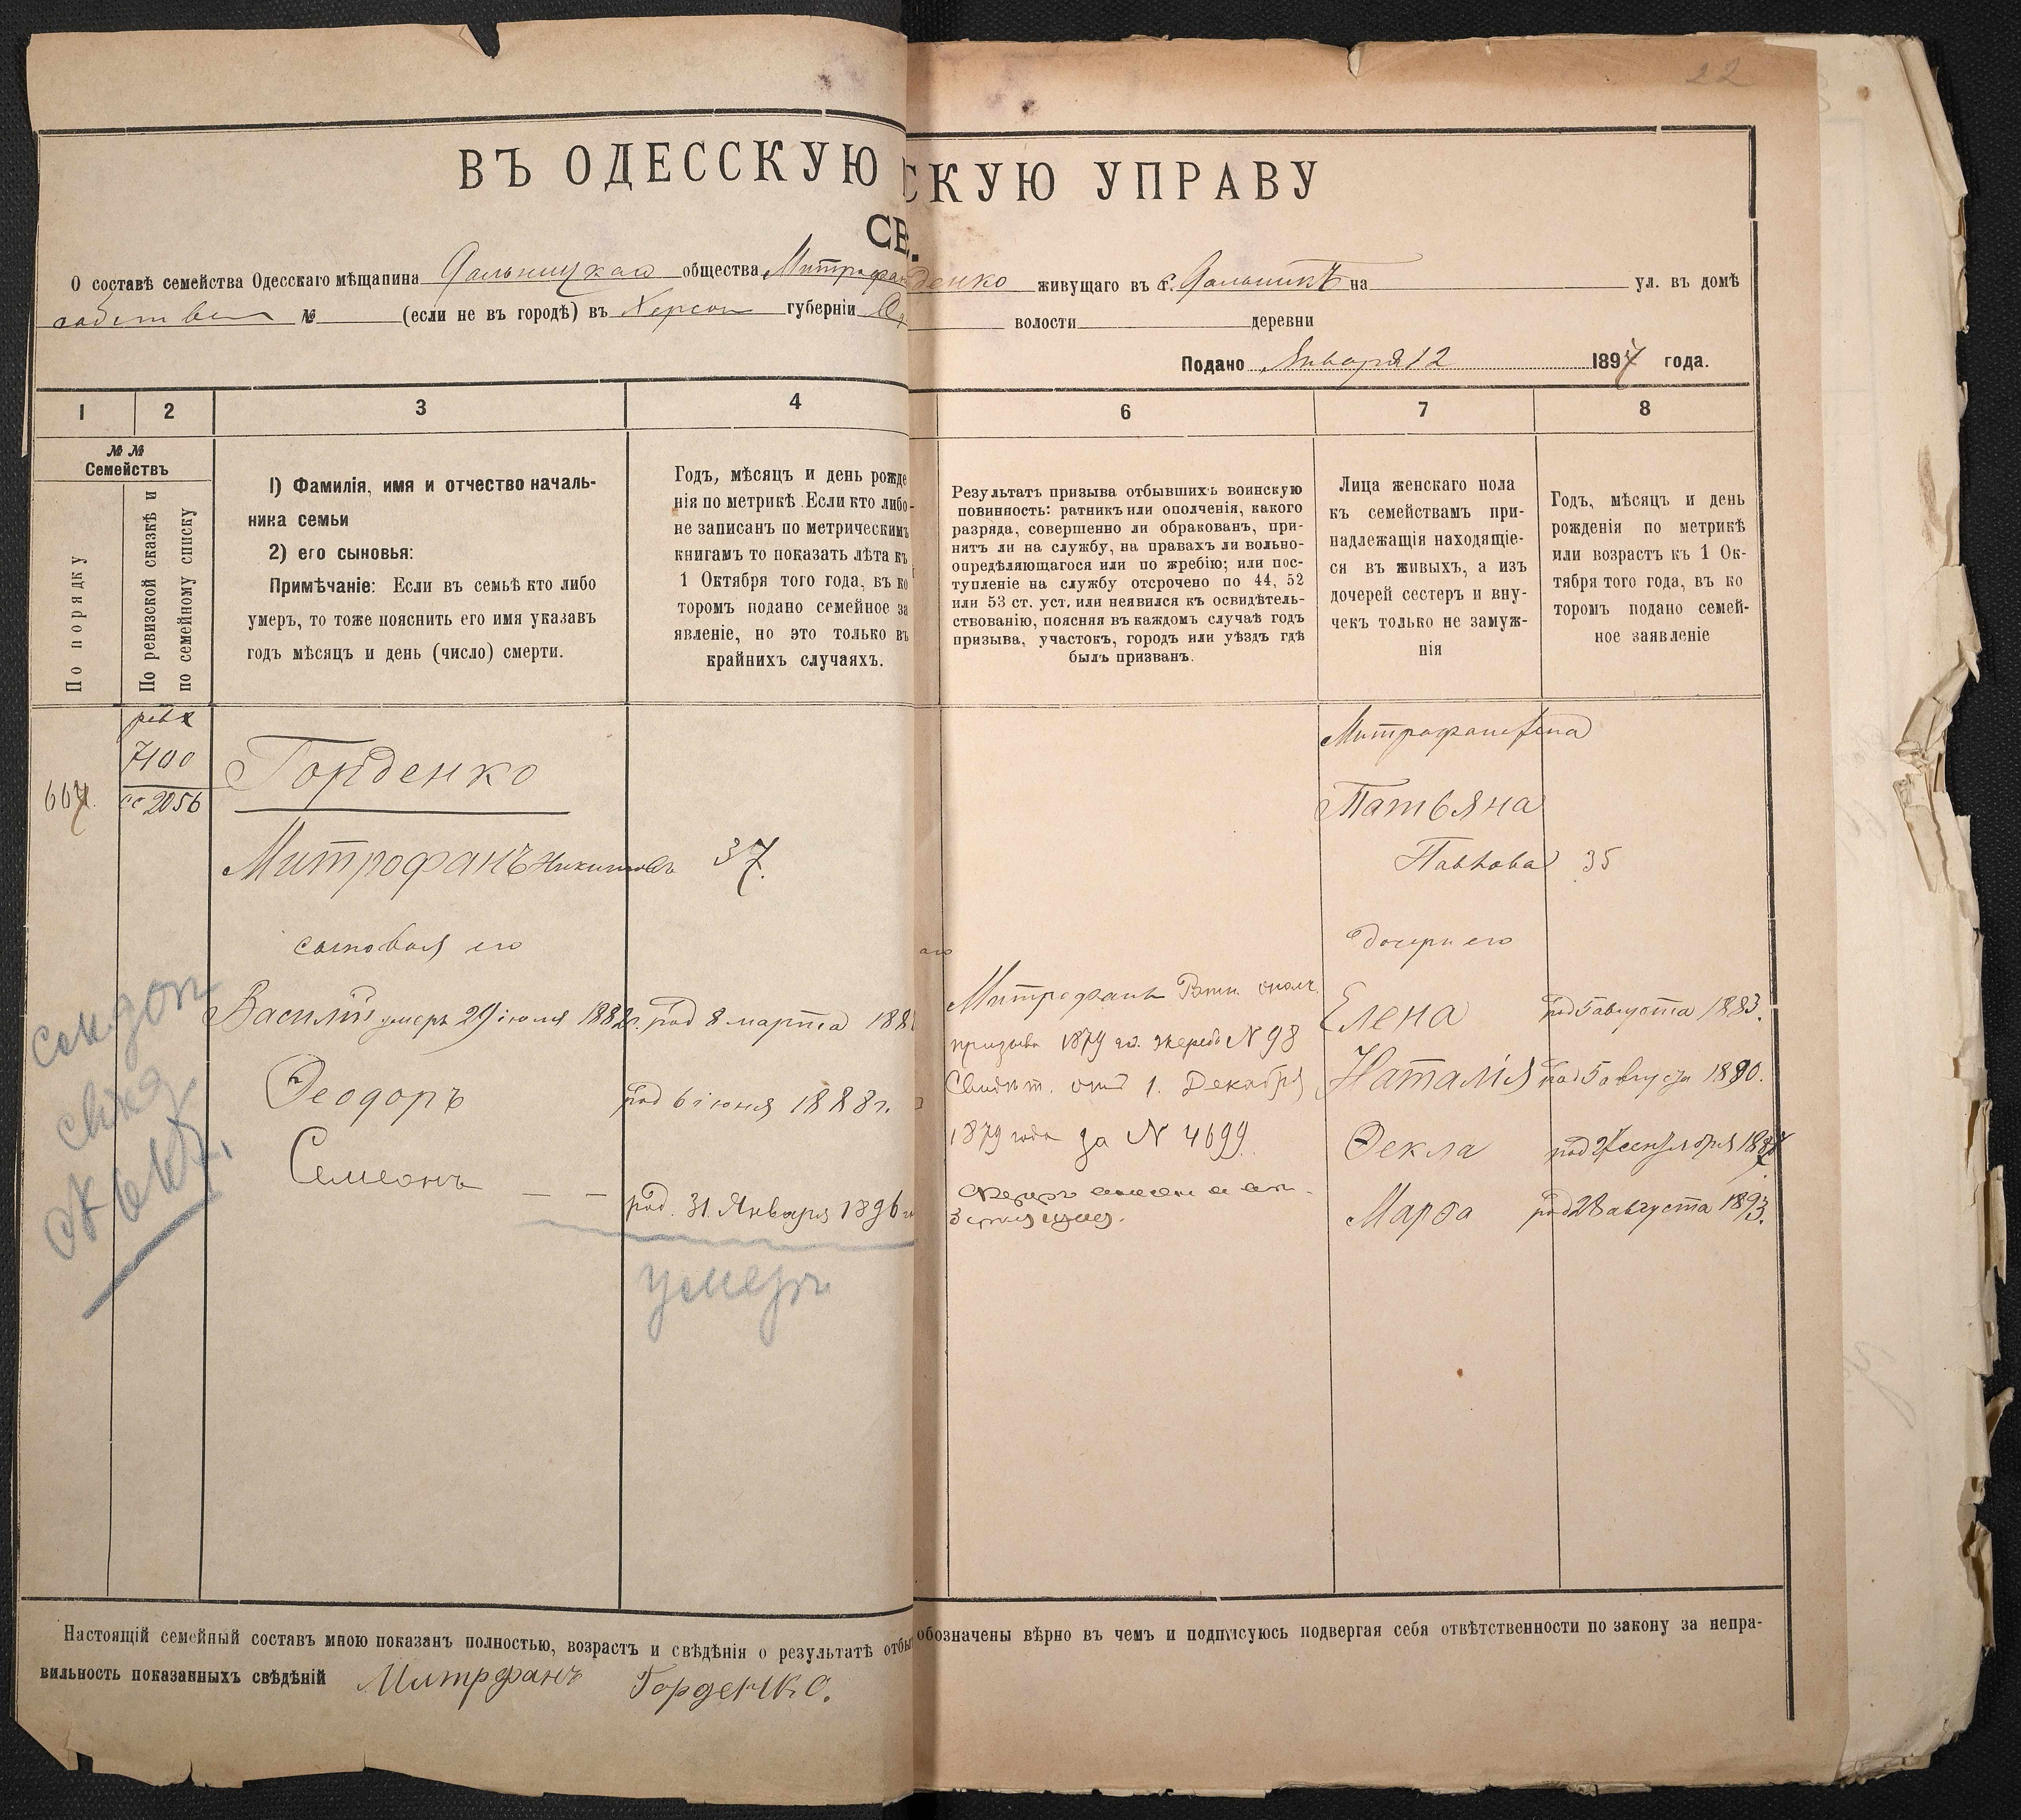 22
ВЪ ОДЕССКУЮ СКУЮ УПРАВУ
СЕ
О составѣ семейства Одесскаго мѣщанина Дальницкаго общества Митрофан денко живущаго въ с. Дальникѣ на ул. въ домѣ
собствен № (если не въ городѣ) въ Херсон губерніи Од волости деревни
Подано Января 12 1897 года.
1 2 3 4 6 7 8
№ №
Семействъ
По порядку
По ревизской сказкѣ и
по семейному списку
1) Фамилія, имя и отчество началь-
ника семьи
2) его сыновья:
Примѣчаніе: Если въ семьѣ кто либо
умеръ, то тоже пояснить его имя указавъ
годъ мѣсяцъ и день (число) смерти.
Годъ, мѣсяцъ и день рожде
нія по метрикѣ Если кто либо-
не записанъ по метрическимъ
книгамъ то показать лѣта къ
1 Октября того года, въ ко
торомъ подано семейное за
явленіе, но это только въ
крайнихъ случаяхъ.
Результатъ призыва отбывшихъ воинскую
повинность: ратникъ или ополченія, какого
разряда, совершенно ли обракованъ, при-
нятъ ли на службу, на правахъ ли вольно-
опредѣляющагося или по жребію; или пос-
тупленіе на службу отсрочено по 44, 52
или 53 ст. уст. или неявился къ освидѣтель-
ствованію, поясняя въ каждомъ случаѣ годъ
призыва, участокъ, городъ или уѣздъ гдѣ
былъ призванъ.
Лица женскаго пола
къ семействамъ при-
надлежащія находящіе-
ся въ живыхъ, а изъ
дочерей сестеръ и вну-
чекъ только не замуж-
нія
Годъ, мѣсяцъ и день
рожденія по метрикѣ
или возрастъ къ 1 Ок-
тября того года, въ ко
торомъ подано семей-
ное заявленіе
7100
667.
сс 2056
Горденко
Митрофанъ Никитовъ 37.
сыновья его
Василій умеръ 29 іюля 1882г. род 8 марта 188
Феодоръ род 6 іюня 1888 г.
Семеонъ — — род. 31. Января 1896 г
умеръ
Митрофанъ Ратн. ополч.
призыва 1879 го. жеребъ N 98
Свидѣт. отъ 1. Декабря
1879 года за N 4699.
Митрофана жена
Татьяна
Павлова 35
дочери его
Елена род 5 августа 1883.
Наталія род 5 августа 1890.
Фекла род 27 сентября 1887
Марфа род 28 августа 1893.
Настоящій семейный составъ мною показанъ полностью, возрастъ и свѣдѣнія о результатѣ отбы обозначены вѣрно въ чемъ и подписуюсь подвергая себя отвѣтственности по закону за непра-
вильность показанныхъ свѣдѣній Митрфанъ Горденко.